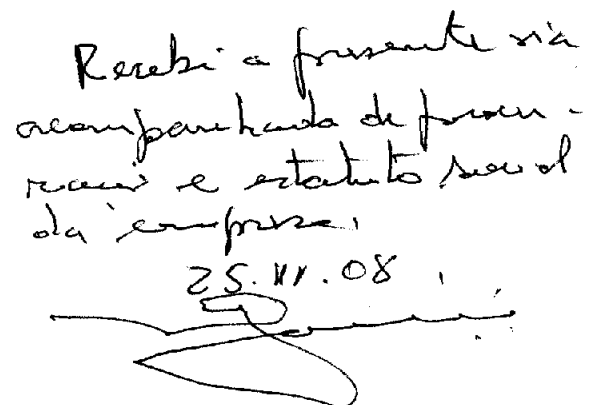 Recebi a presente via
acompanhada de procu-
ração e estatuto social
da empresa.
25. .08